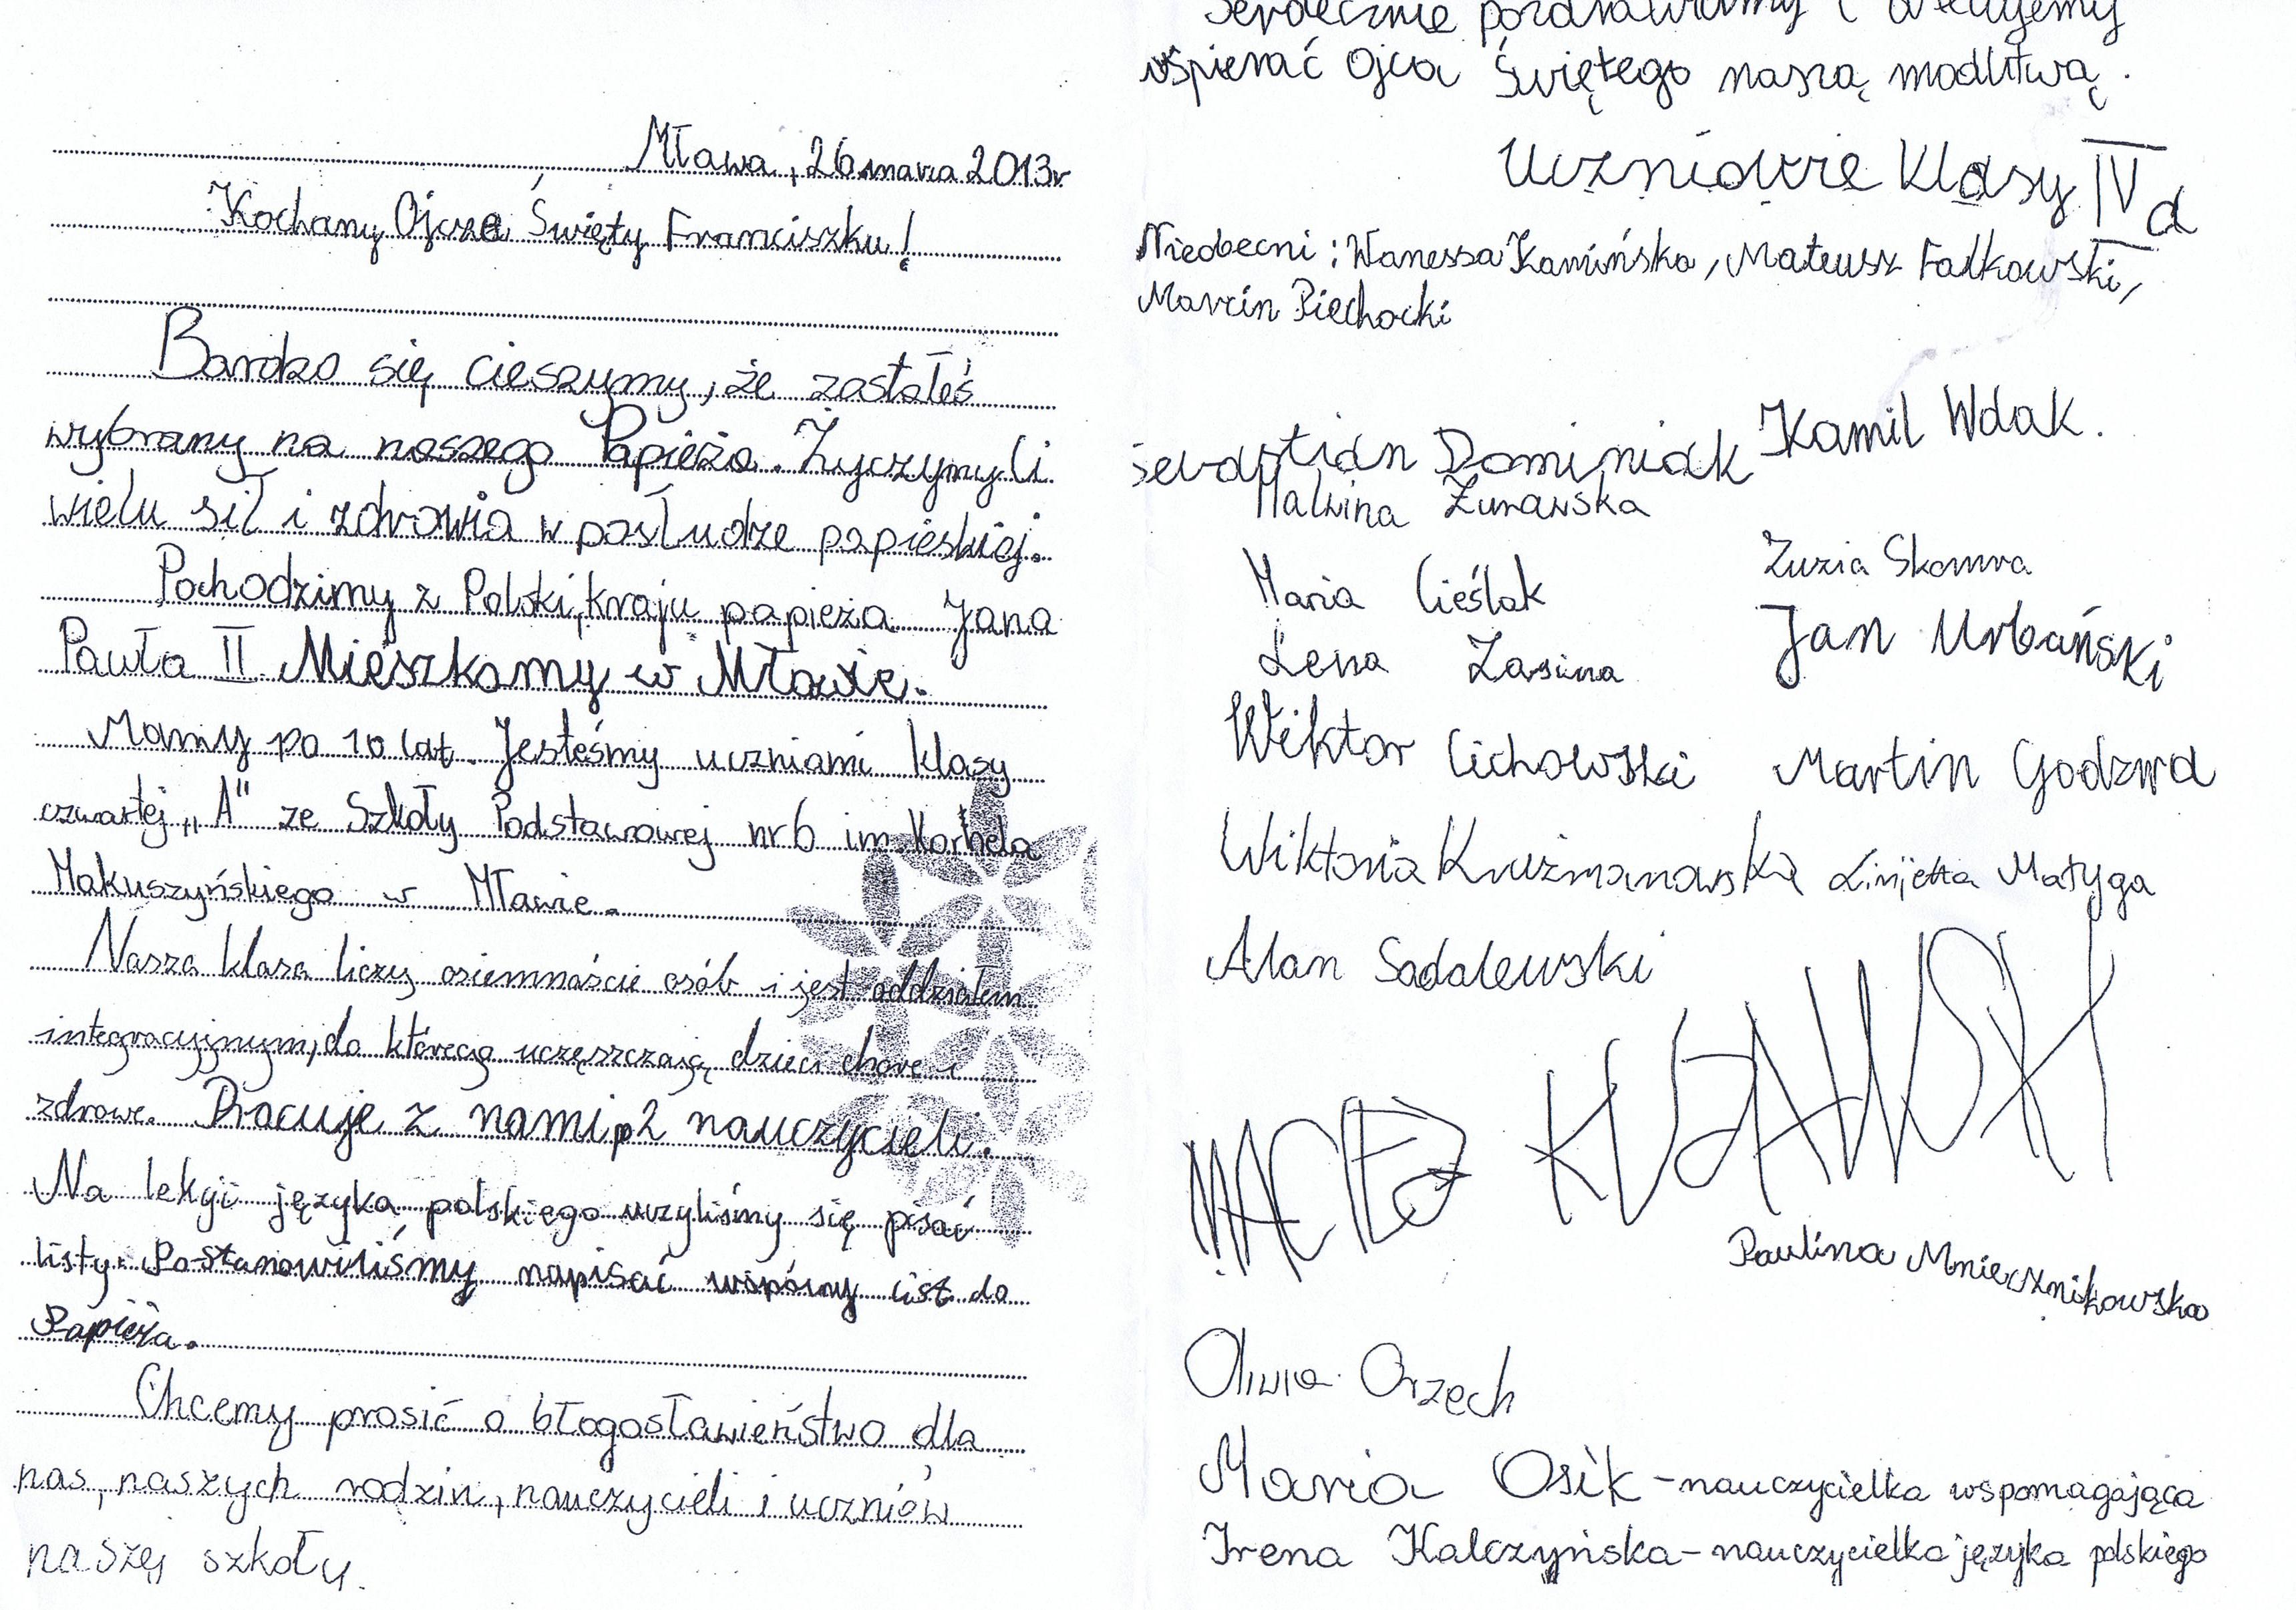 Mława, 26 marca 2013r
Kochany Ojcze Święty Franciszku!
Bardzo się cieszymy, że zostałeś
wybrany na naszego Papieża. Życzymy Ci
wielu sił i zdrowia w posłudze papieskiej.
Pochodzimy z Polski, kraju papieża Jana
Pawła II. Mieszkamy w Mławie.
Mamy po 10 lat. Jesteśmy uczniami klasy
czwartej „A" ze Szkoły Podstawowej nr 6 im. Kornela
Makuszyńskiego w Mławie.
Nasza klasa liczy osiemnaście osób i jest oddziałem
integracyjnym, do którego uczęszczają dzieci chore i
zdrowe. Pracuje z nami 2 nauczycieli.
Na lekcji języka polskiego uczyliśmy się pisać
listy. Postanowiliśmy napisać wspólny list do
Papieża.
Chcemy prosić o błogosławieństwo dla
nas, naszych rodzin, nauczycieli i uczniów
naszej szkoły.
Serdecznie pozdrawiamy i obiecujemy
wspierać Ojca Świętego naszą modlitwą.
Uczniowie klasy IV a
Nieobecni: Wanessa Kamińska, Mateusz Falkowski,
Marcin Piechocki
Sebastian Dominiak Kamil Wdak.
Malwina Żurawska
Zuzia Skomra
Maria Cieślak
Jan Urbański
Lena Zasina
Wiktor Cichowski Martin Godzwa
Wiktoria Matyga
Alan Sadalewski
MACIEJ
Paulina Mniecznikowska
Oliwia Orzech
Maria Osik - nauczycielka wspomagająca
Irena Kalczyńska - nauczycielka języka polskiego